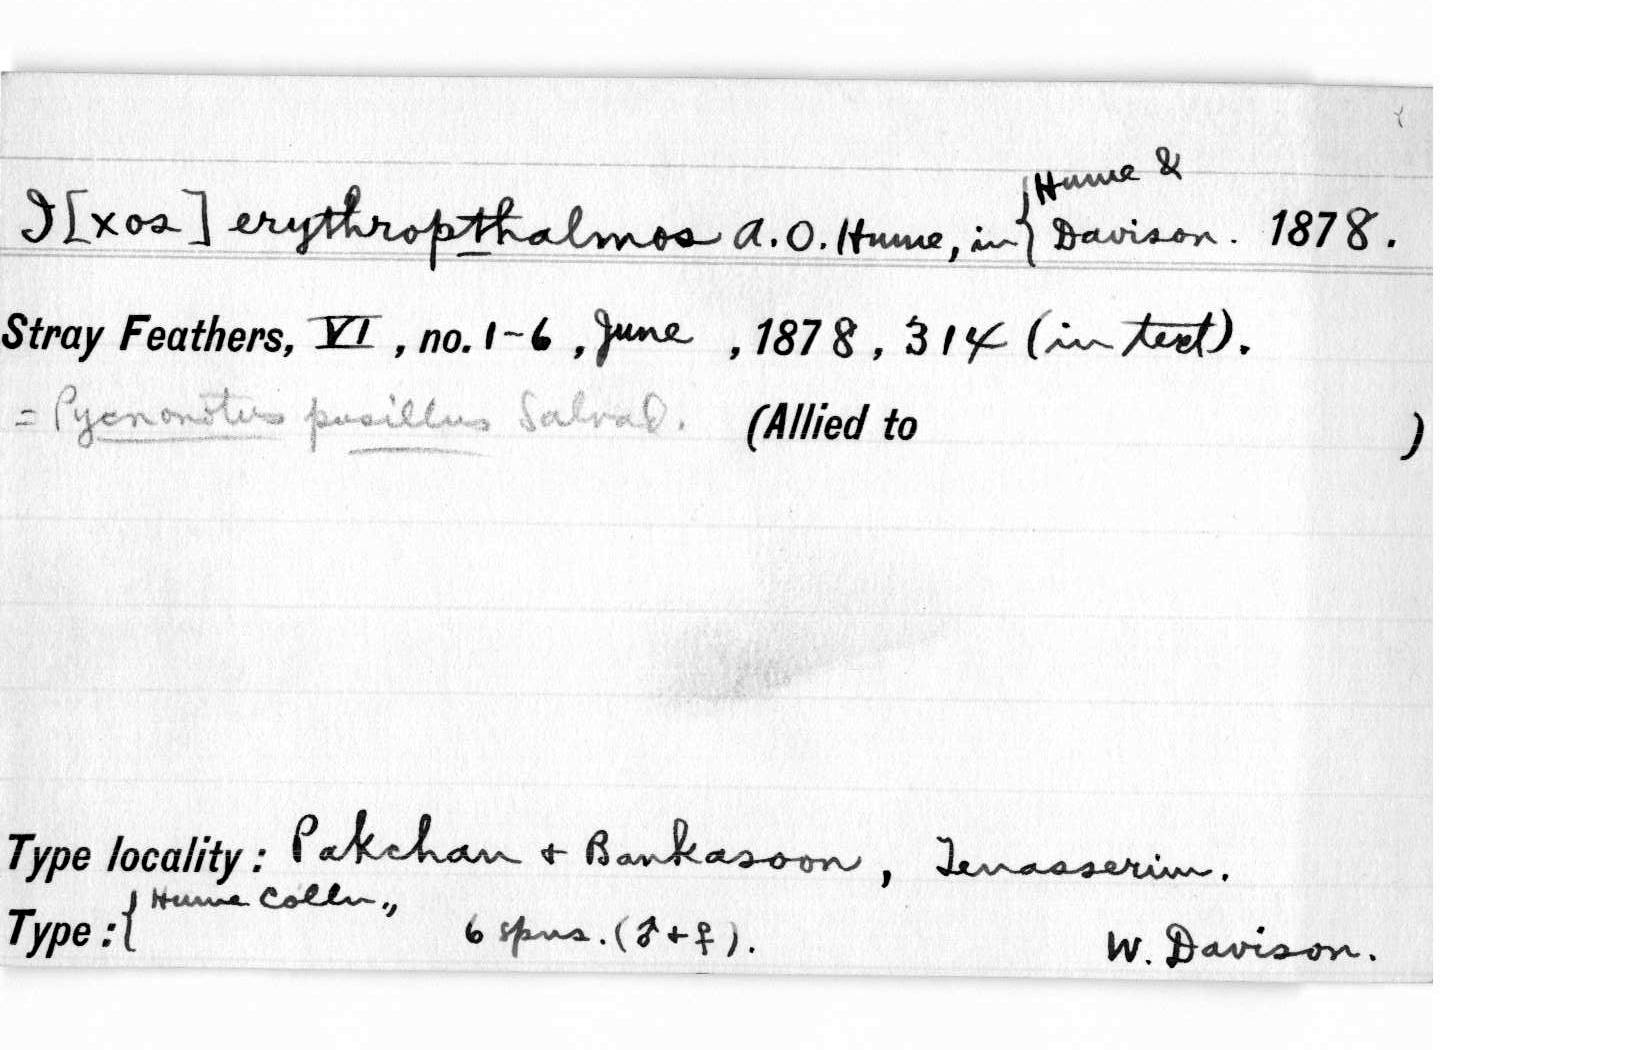 I[xos] erythropthalmos A.O. Hume, in { Hume & Davison. 1878.
Stray Feathers, VI, no. 1-6, June, 1878, 314 (in text).
= Pycnonotus pusillus Salvad. (Allied to )
Type locality: Pakchan + Bankasoon, Tenasserim.
Type: { Hume Colln., 6 spns. (♂ + ♀). W. Davison.